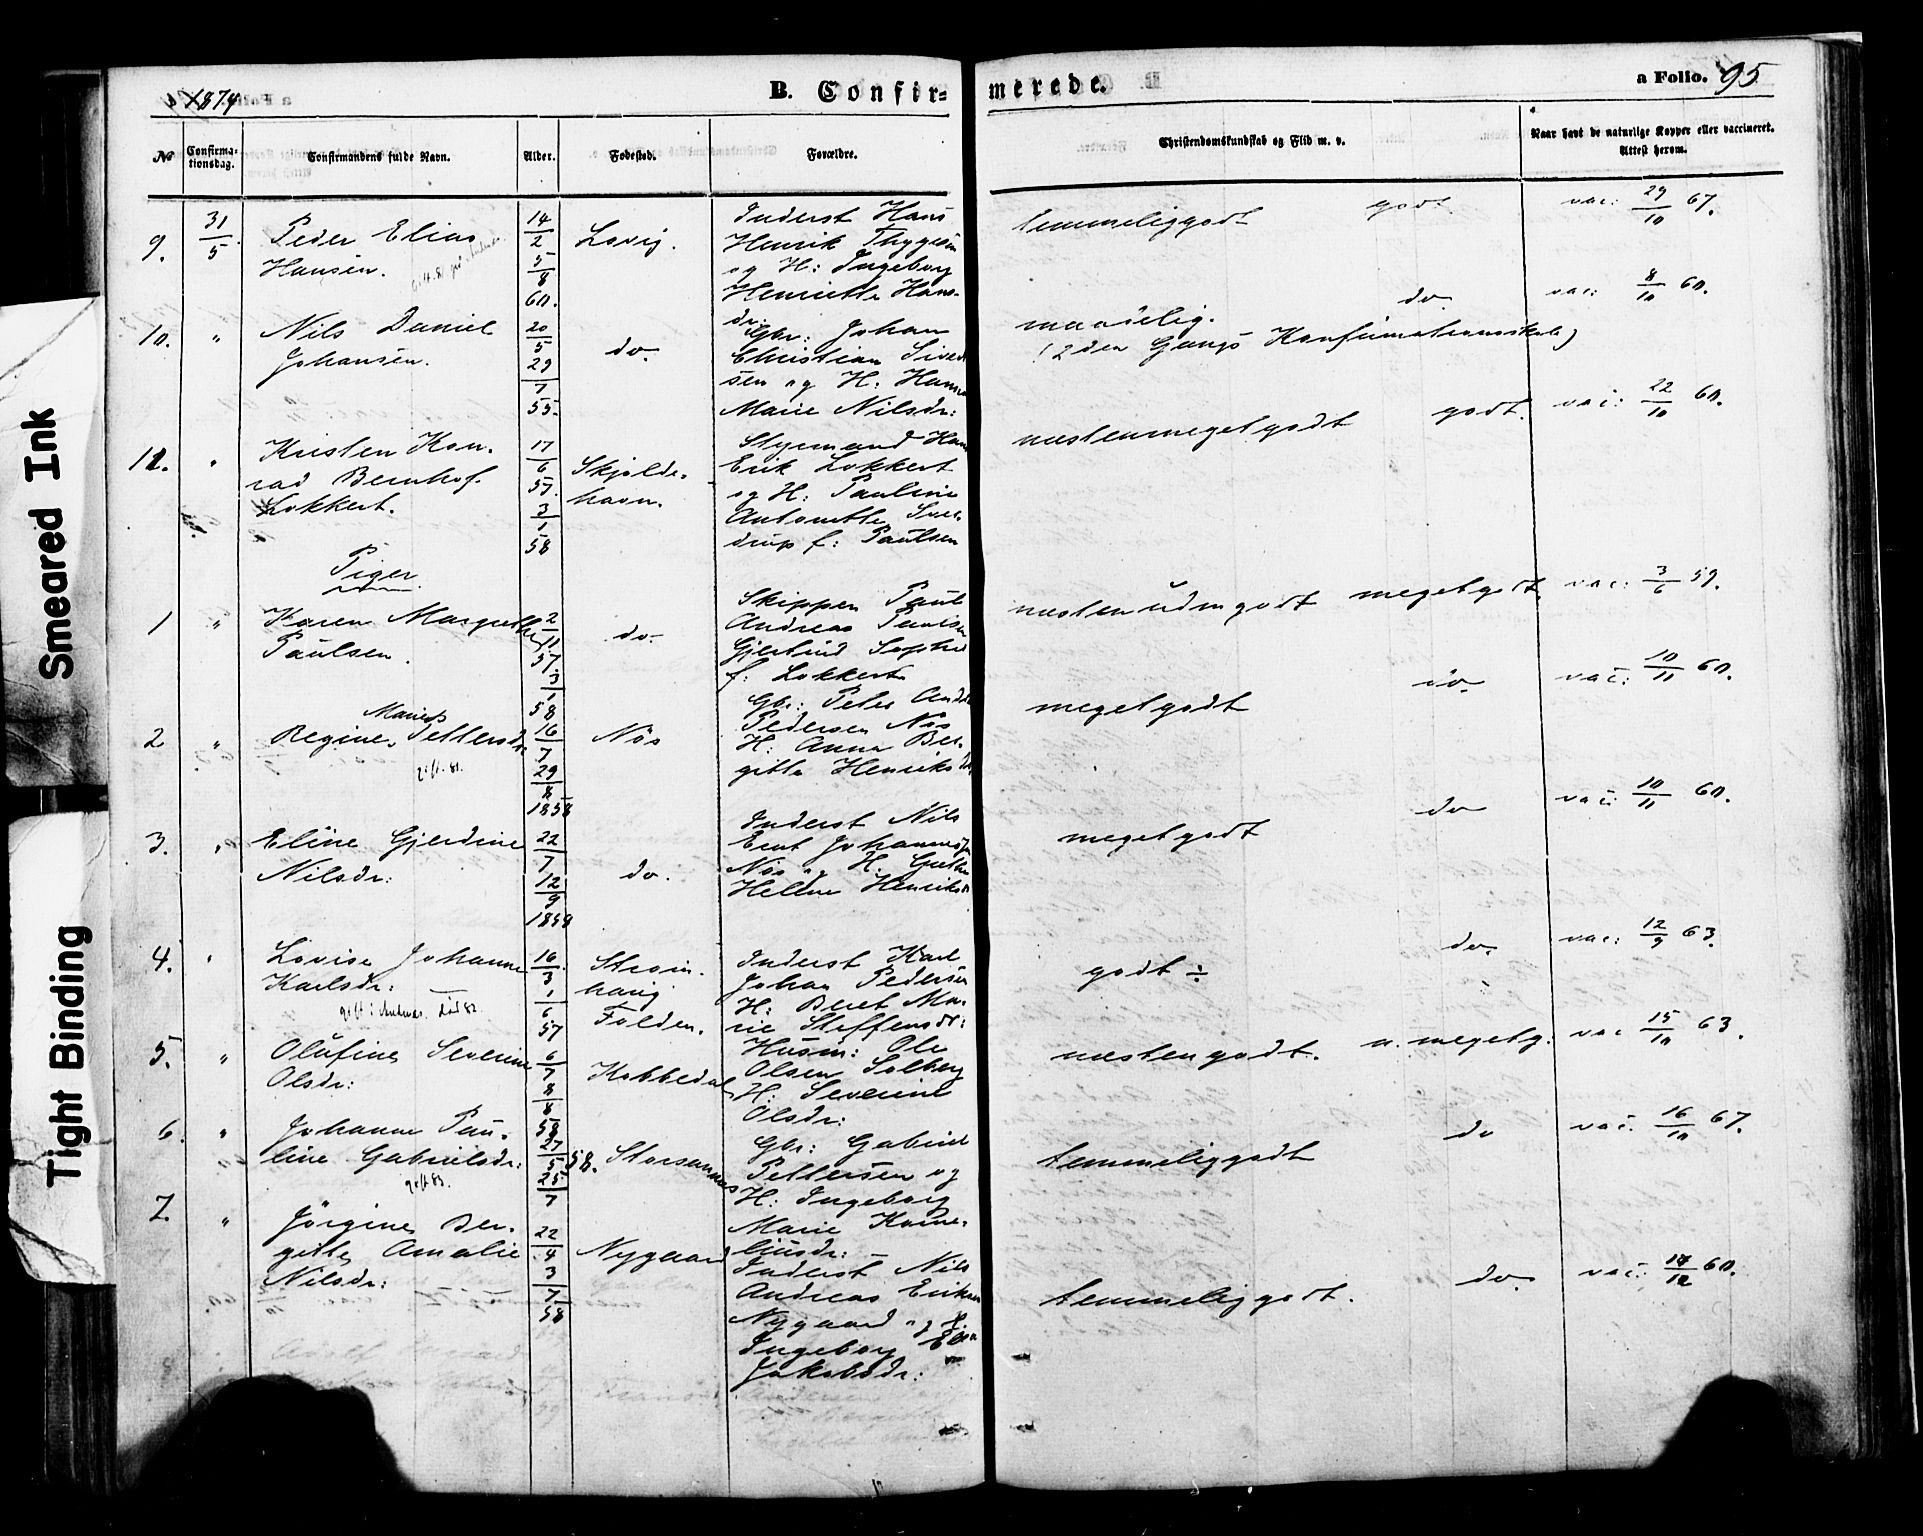 Smeared Ink
Tight Binding
1874
B. Confir-
merede.
a Folio. 95
№
Confirma-
tionsdag.
Confirmandens fulde Navn.
Alder.
Fødested.
Forældre.
Christendomskundskab og Flid m. v.
Naar havt de naturlige Kopper eller vaccineret.
Attest herom.
9. 31/5 Peder Elias
Hansen.
14/2 5/8 60.
Lovig.
Inderst Hans
Henrik Thygesen
og H: Ingeborg
Henriette Hans-
dr:
temmeliggodt godt vac: 29/10 67.
10. " Nils Daniel
Johansen.
20/5 29/7 55.
do.
Gbr: Johan
Christian Sivert
sen og H: Hanna
Marie Nilsdr:
maaselig. do vac: 8/10 60.
(2den Gangs Konfirmationsskole)
11. " Kristen Kon-
rad Bernhof
Lokkert.
17/6 57. 3/1 58
Skjolde-
havn.
Styrmand Hans
Erik Lokkert
og H: Pauline
Antonette Sver-
drup f: Paulsen
næstenmegetgodt godt. vac: 22/10 60.
Piger
1 " Karen Margrethe
Paulsen.
2/11 57. 3/1 58
do.
Skipper Paul
Andreas Paulsen
Gjertrud Sophie
f: Lokkert
næstenudmgodt megetgodt. vac: 3/6 59.
2 " Marie
Regine Pettersdr.
gift 81.
16/7 29/8 1858
Nös
Gbr: Peter Andr.
Pedersen Nös
H: Anna Ber-
gitte Henriksdr
megetgodt do. vac: 10/11 60.
3. " Eline Gjerdine
Nilsdr:
22/7 12/9 1859
do.
Inderst Nils
Ernt Johannesen
Nös og H: Grethe
Helene Henriksdr
megetgodt do vac: 10/11 60.
4. " Lovise Johanne
Karlsdr:
gift i Andenæs. död 82.
16/3 1/6 57
Folden.
Inderst Karl
Johan Pedersen
H: Beret Ma-
rie Steffensdr:
godt ÷ do. vac: 12/9 63.
5. " Olufine Severine
Olsdr:
6/7 8/8 58
Kobbedal
Husm: Ole
Olsen Solberg
H: Severine
Olsdr:
næstengodt. n. megetg: vac 15/10 63.
6. " Johanne Pau-
line Gabrielsdr:
gift 83.
27/5 58. 25/7
Storsannæs
Gbr: Gabriel
Pettersen og
H: Ingeborg
Marie Korne-
liusdr:
temmeliggodt do vac. 16/10 67.
7. " Jörgine Ber-
gitte Amalie
Nilsdr:
22/4 3/7 58
Nygaard
Inderst Nils
Andreas Eriksen
Nygaard og H.
Ingeborg Elen
Jakobsdr:
temmeliggodt. do. vac: 17/12 60.